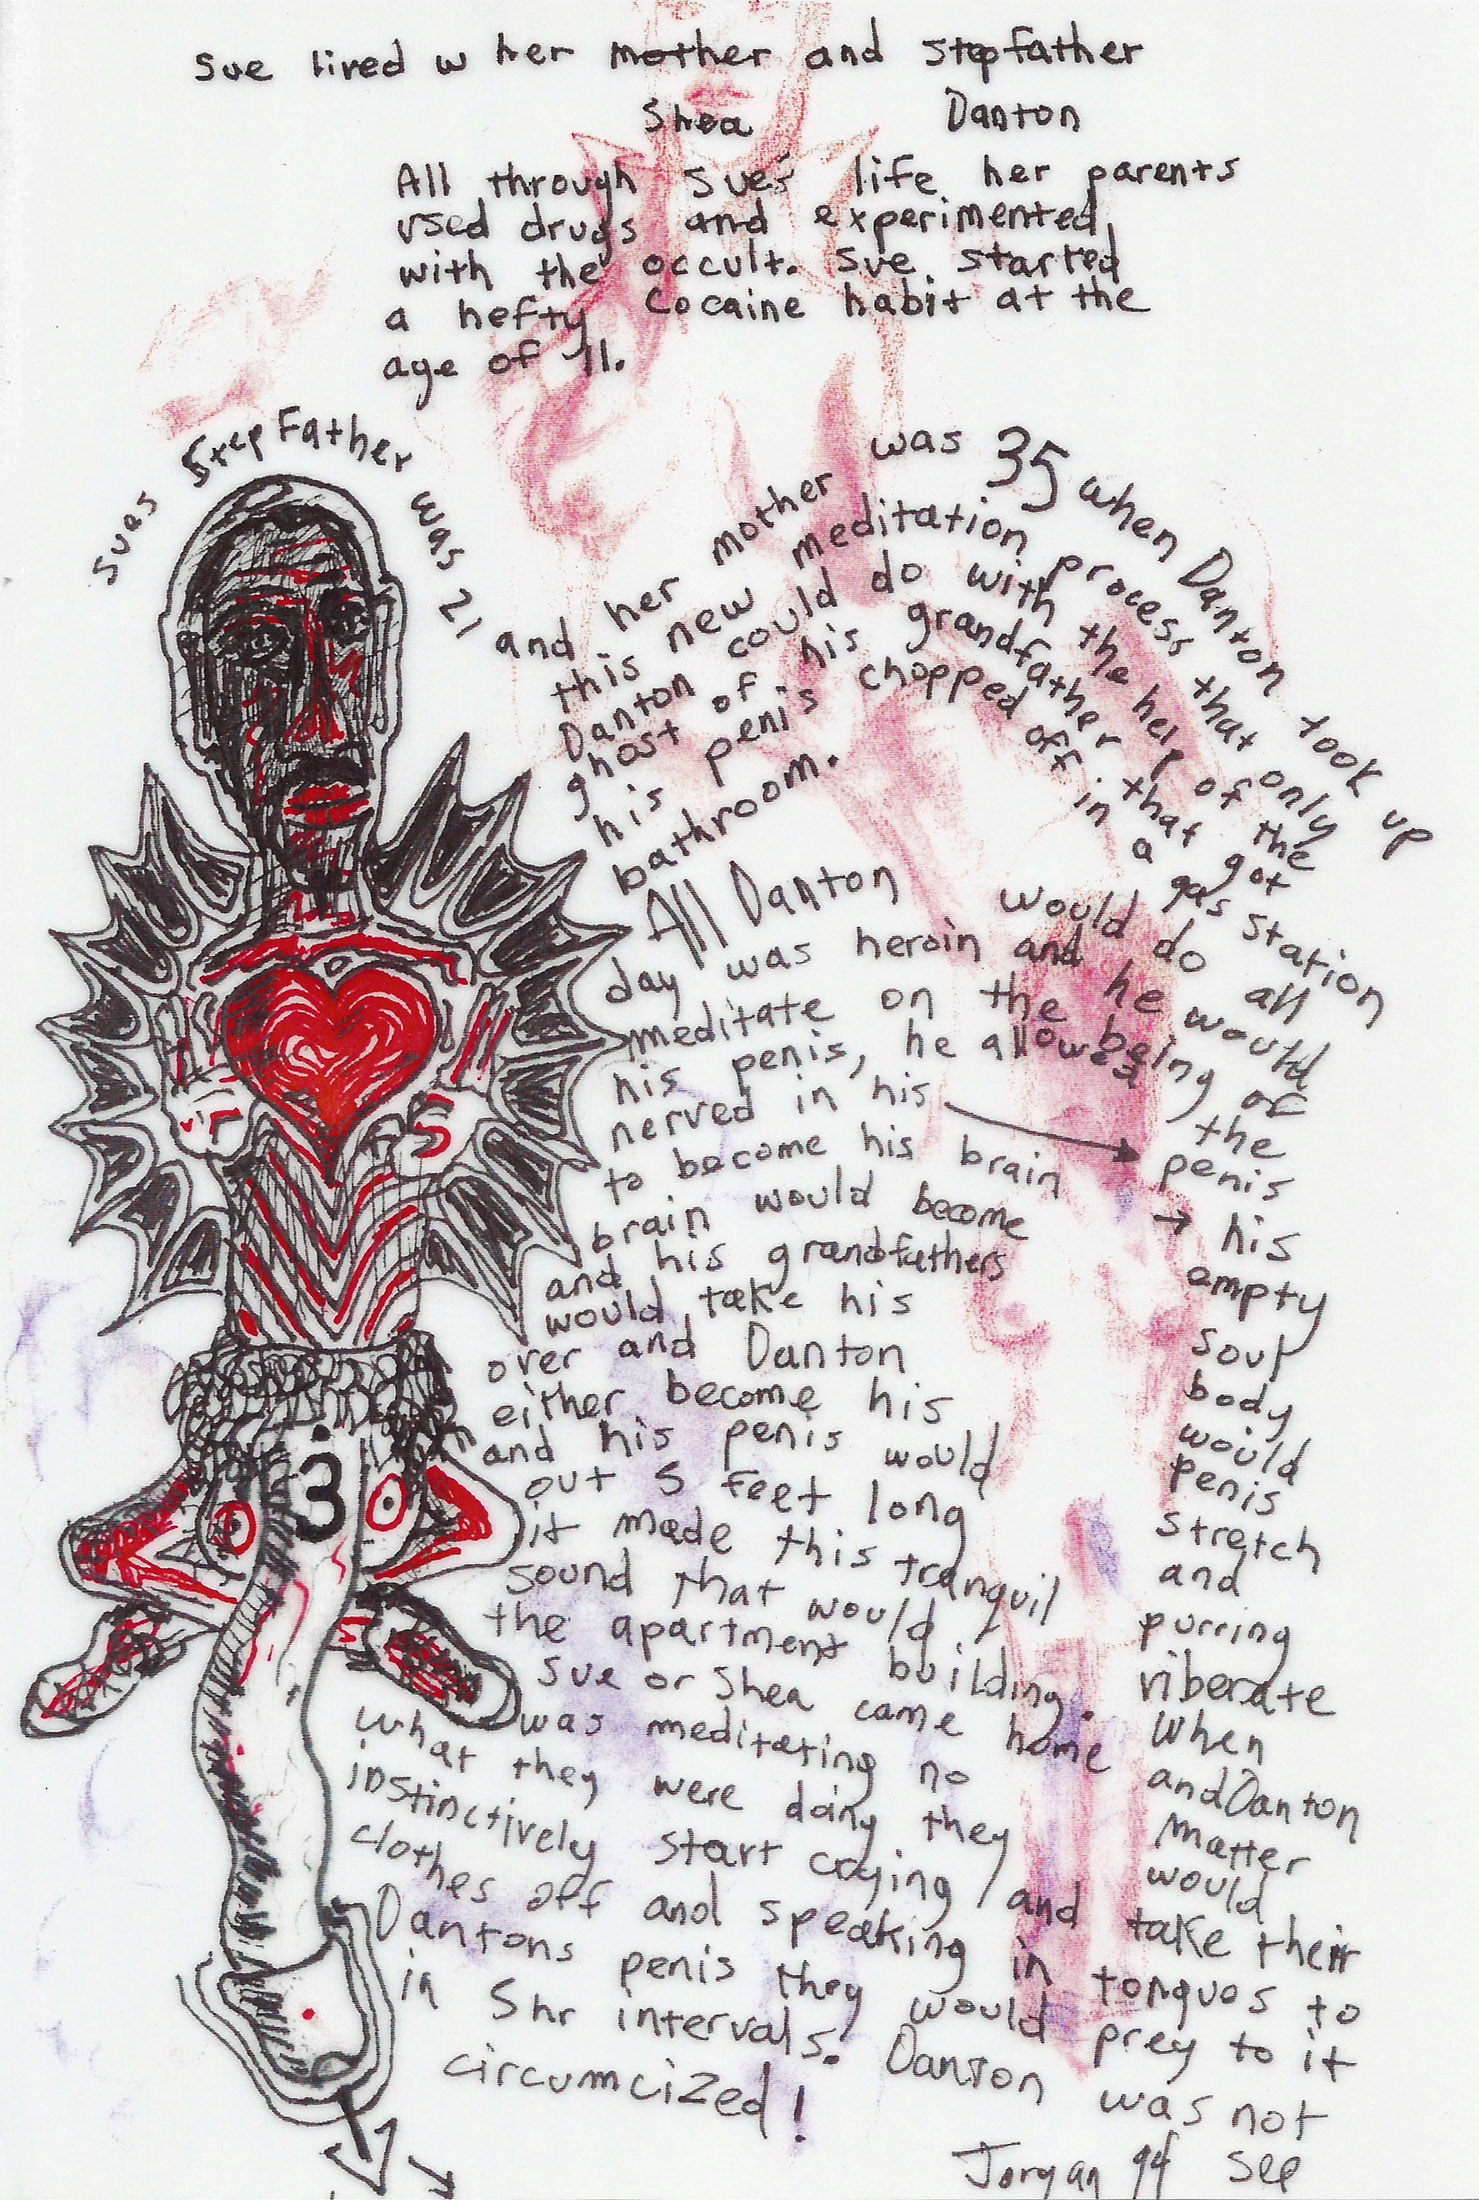 Sue lived w her mother and stepfather
Shea Danton
All through sue's life her parents
used drugs and experimented
with the occult. Sue started
a hefty cocaine habit at the
age of 11.
sues stepFather was 21 and her mother was 35 when Danton took up
this new meditation process that only
Danton could do with the help of the
ghost of his grandfather that got
his penis chopped off in a gas station
bathroom.
All Danton would do all
day was heroin and he would
meditate on the being of
his penis, he allowed the
nerved in his → penis
to become his brain → his
brain would become empty
and his grandfathers soul
would take his body
over and Danton would
either become his penis
and his penis would stretch
out 5 feet long and
it made this tranquil purring
sound that would viberate
the apartment building. When
sue or Shea came home andDanton
was meditating no matter
what they were doing they would
instinctively start crying / and take their
clothes off and speaking in tongues to
Dantons penis they would prey to it
in 5hr intervals. Danton was not
circumcized!
3
94 see